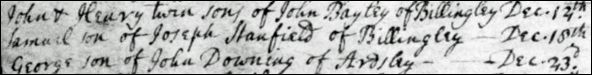 John & Henry twin sons of John Bayley of Billingley Dec. 12th
Samuel son of Joseph Stanfield of Billingley — Dec. 18th
George son of John Downing of Ardsley — — Dec. 23d